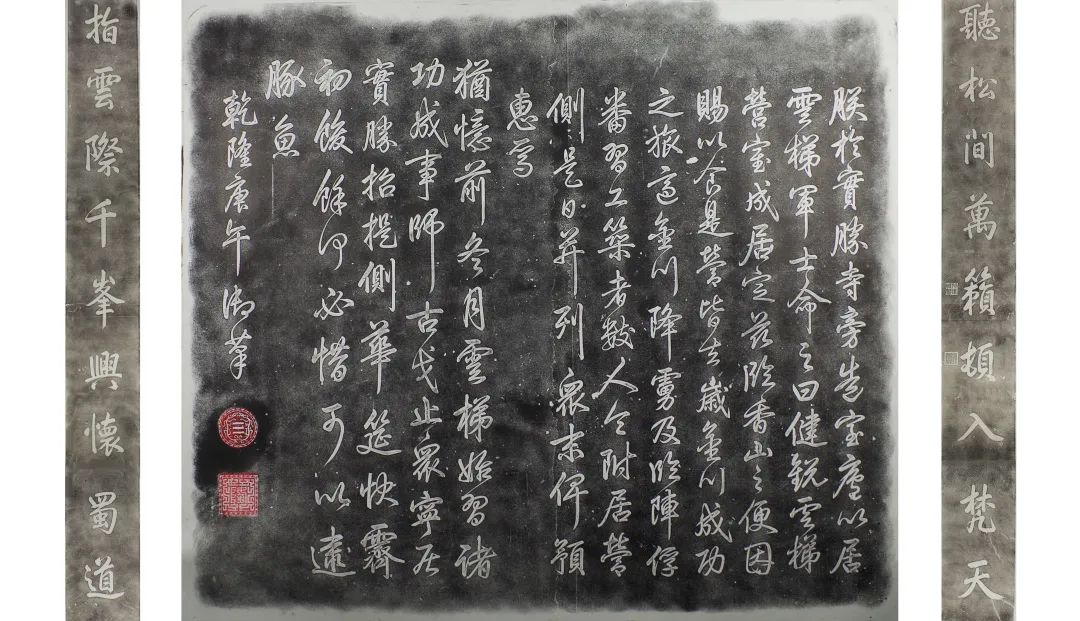 聽松間萬籟頓入梵天
朕於實勝寺旁造室廬以居
雲梯軍士命之曰健銳雲梯
營室成居定茲臨香山之便因
賜以食是營皆去歲金川成功
之旅適金川降虜及臨陣俘
番習工築者數人令附居營
側是日并列眾末俾預
惠焉
猶憶前冬月雲梯始習諸
功成事師古戈止眾寧居
實勝招提側華筵快霽
初餕餘何必惜可以逮
豚魚
乾隆庚午御筆
指雲際千峯興懷蜀道